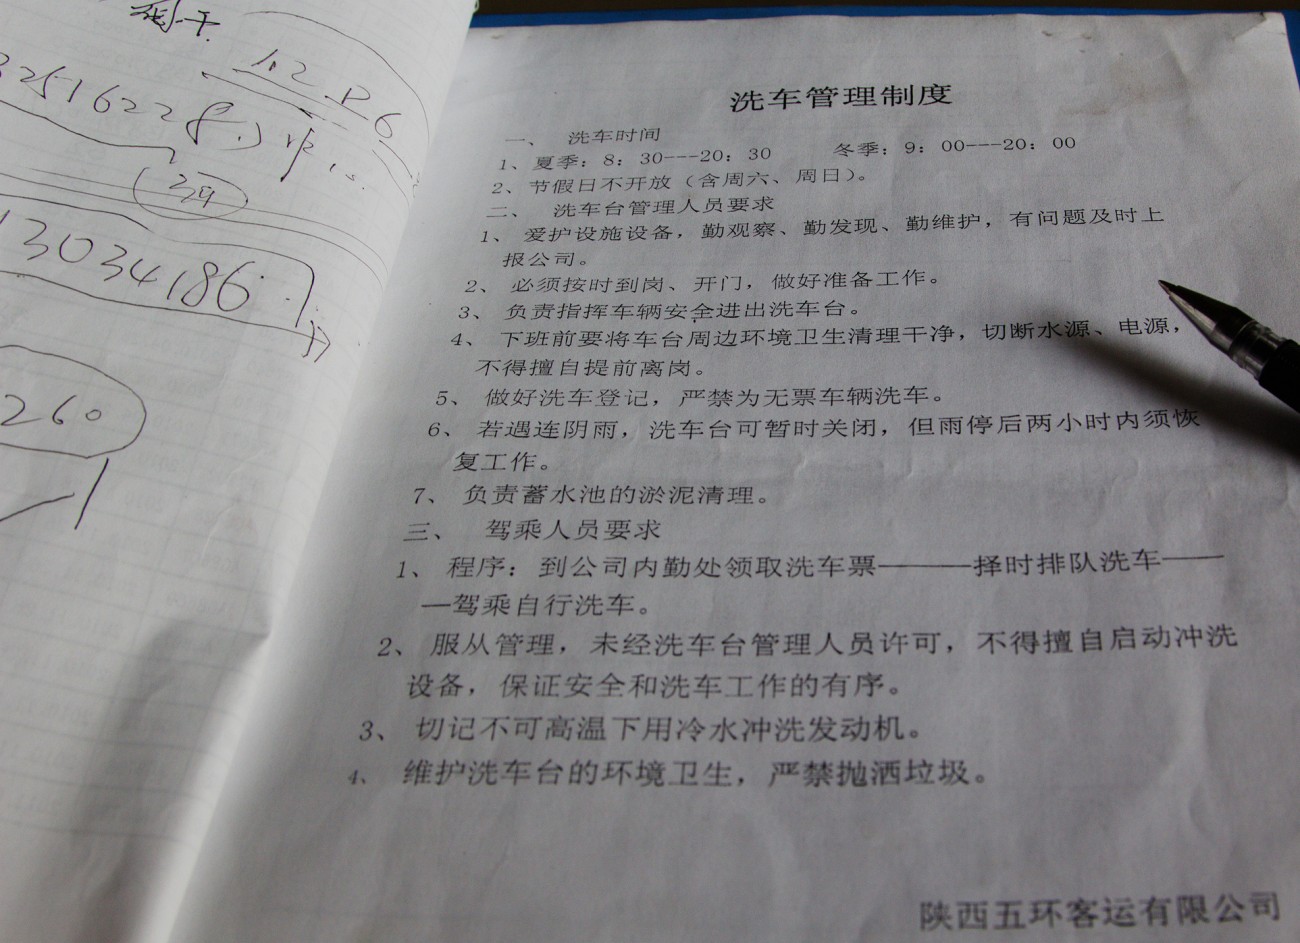 12.26
3251622
13034186
260
洗车管理制度
一、 洗车时间
1、夏季：8：30---20：30 冬季：9：00---20：00
2、节假日不开放（含周六、周日）。
二、 洗车台管理人员要求
1、 爱护设施设备，勤观察、勤发现、勤维护，有问题及时上
报公司。
2、 必须按时到岗、开门，做好准备工作。
3、 负责指挥车辆安全进出洗车台。
4、 下班前要将车台周边环境卫生清理干净，切断水源、电源，
不得擅自提前离岗。
5、 做好洗车登记，严禁为无票车辆洗车。
6、 若遇连阴雨，洗车台可暂时关闭，但雨停后两小时内须恢
复工作。
7、 负责蓄水池的淤泥清理。
三、 驾乘人员要求
1、 程序：到公司内勤处领取洗车票———择时排队洗车——
—驾乘自行洗车。
2、 服从管理，未经洗车台管理人员许可，不得擅自启动冲洗
设备，保证安全和洗车工作的有序。
3、 切记不可高温下用冷水冲洗发动机。
4、 维护洗车台的环境卫生，严禁抛洒垃圾。
陕西五环客运有限公司